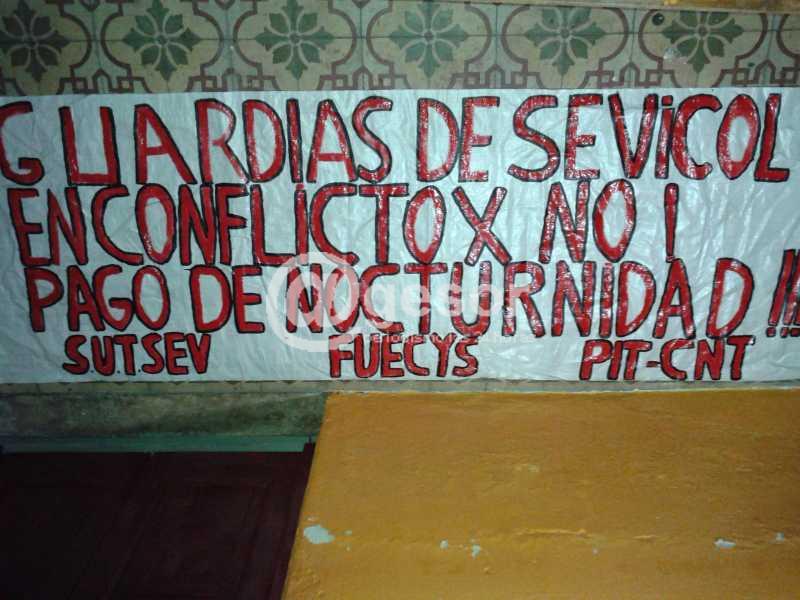 GUARDIAS DE SEViCOL
EN CONFLiCTO X NO !
PAGO DE NOCTURNIDAD !!!
S.U.T.SEV FUECYS PIT-CNT
@gesor